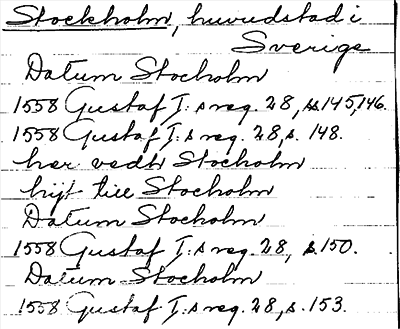 Stockholm, huvudstad i
Sverige
Datum Stocholm
1558 Gustaf I:s reg. 28, s. 145, 146.
1558 Gustaf I:s reg. 28, s. 148.
her vedh Stocholm
hijt till Stocholm
Datum Stocholm
1558 Gustaf I:s reg. 28, s. 150.
Datum Stocholm
1558 Gustaf I:s reg. 28, s. 153.